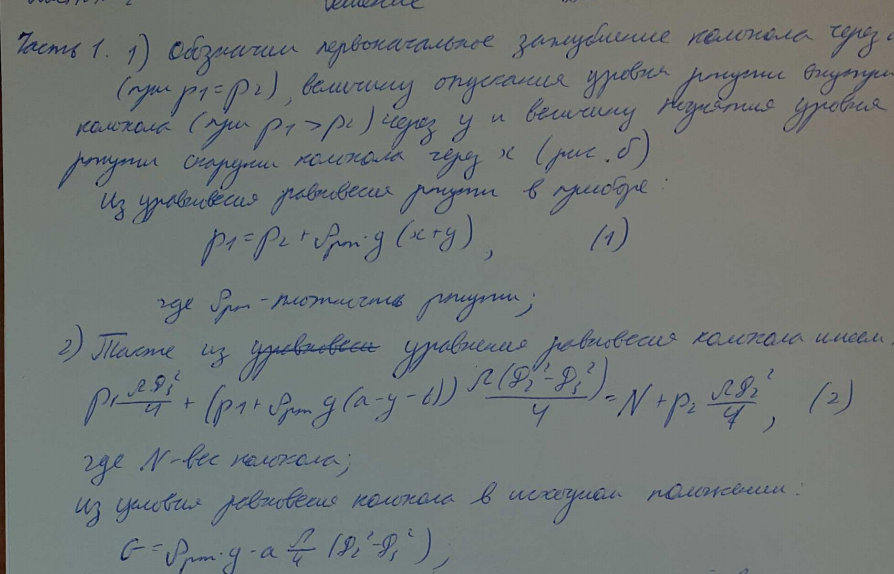 Решение
Часть 1. 1) Обозначим первоначальное заглубление колокола через
(при p₁=p₂), величину опускания уровня ртути внутри
колокола (при p₁>p₂) через y и величину поднятия уровня
ртути снаружи колокола через x (рис. б)
Из уравновесия равновесия ртути в приборе:
p₁=p₂+ρрт·g(x+y), (1)
где ρрт-плотность ртути;
2) Также из уравнения равновесия колокола имеем:
p₁ πD₁²/4 + (p₁+ρрт g(a-y-t)) π(D₂²-D₁²)/4 = N+p₂ πD₂²/4, (2)
где N-вес колокола;
Из условия равновесия колокола в исходном положении:
G=ρрт·g·a π/4 (D₂²-D₁²);